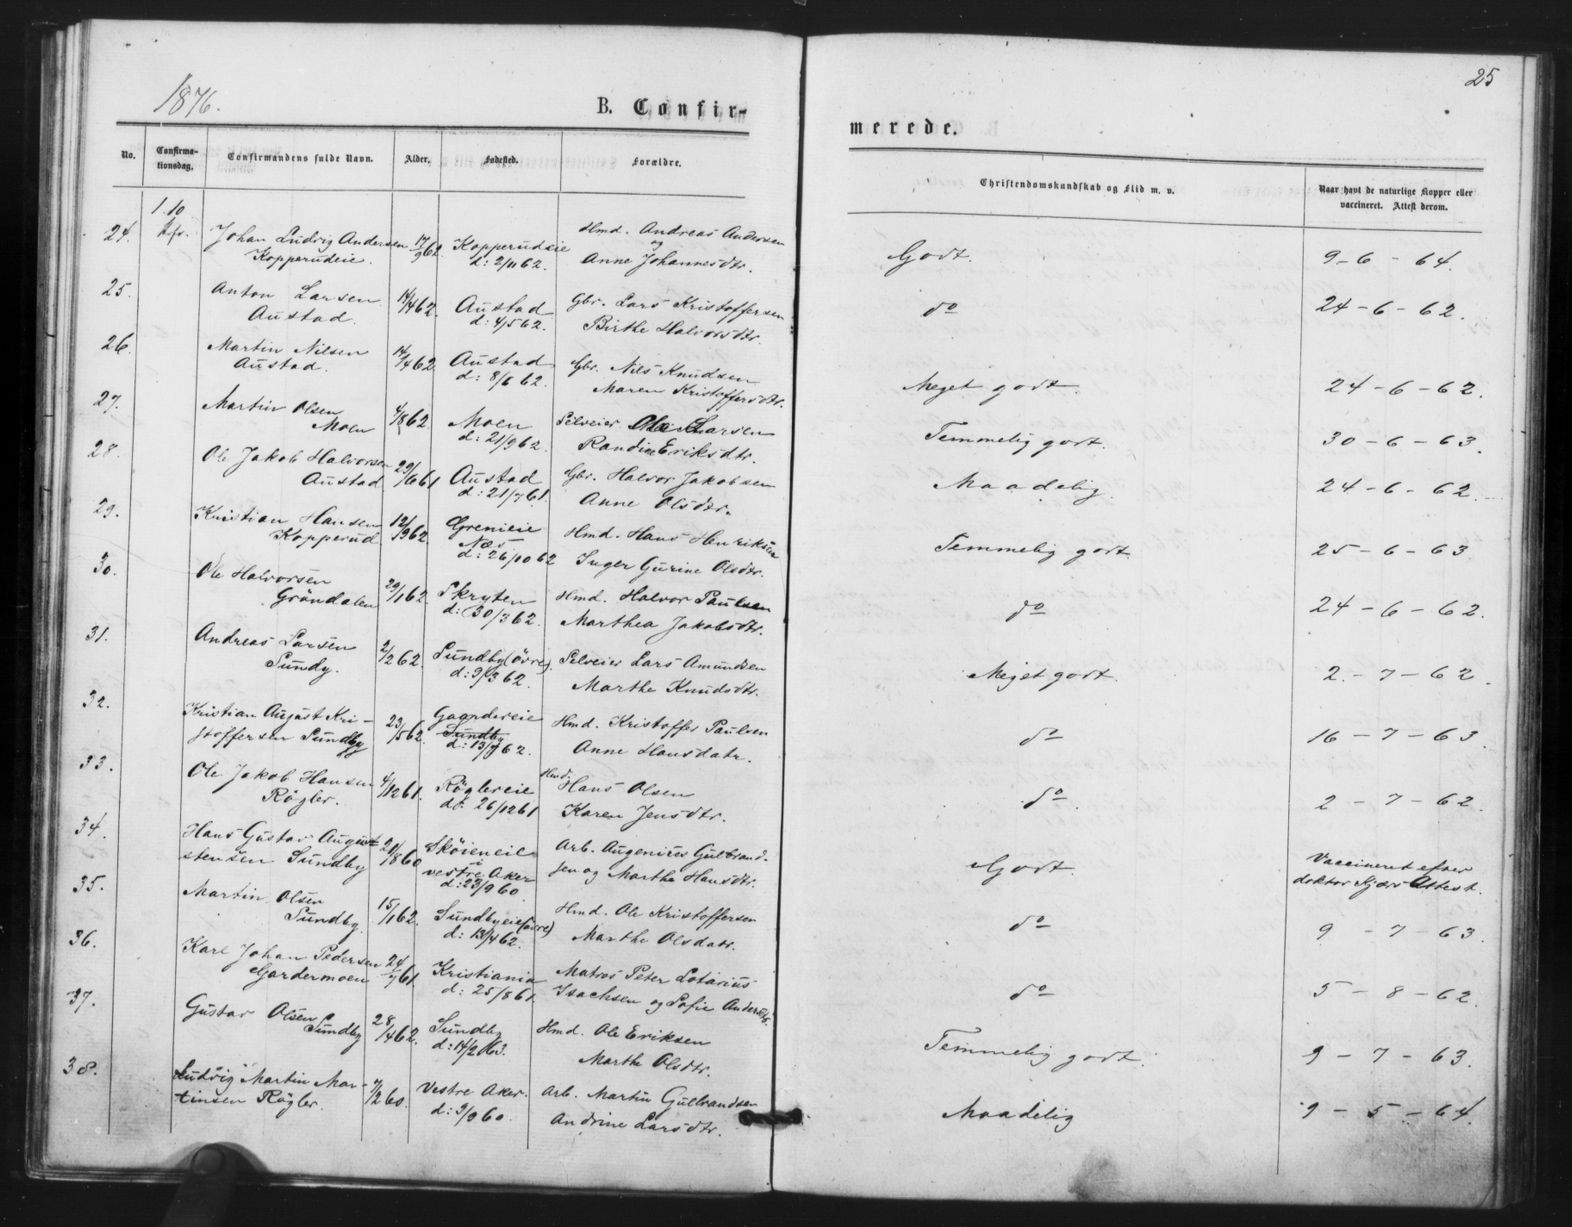 1876.
B. Confir-
merede.
25
No.
Confirma-
tionsdag.
Confirmandens fulde Navn.
Alder.
Fødested.
Forældre.
Christendomskundskab og Flid m. v.
Naar havt de naturlige Kopper eller
vaccineret. Attest derom.
1.10
24. Johan Ludvig Andersen 17/9 62. Kopperudeie Hmd. Andreas Andersen
Kopperudeie. d: 2/11 62. og Anne Johannesdtr.
Godt. 9 - 6 - 64.
25. Anton Larsen 14/4 62. Austad Gbr. Lars Kristoffersen
Austad. d: 4/5 62. Birthe Halvorsdtr.
do 24 - 6 - 62.
26. Martin Nilsen 14/4 62. Austad Gbr. Nils Knudsen
Austad. d: 8/6 62. Maren Kristoffersdtr.
Meget godt. 24 - 6 - 62.
27. Martin Olsen 4/8 62 Moen Selveier Ole Larsen
Moen d: 21/9 62. Randine Eriksdtr.
Temmelig godt. 30 - 6 - 63.
28. Ole Jakob Halvorsen 29/6 61 Austad Gbr. Halvor Jakobsen
Austad d: 21/7 61. Anne Olsdtr.
Maadelig. 24 - 6 - 62.
29. Kristian Hansen 12/9 62. Grenieie Hmd. Hans Henriksen
Kopperud Næs
d: 26/10 62 Inger Gurine Olsdtr.
Temmelig godt 25 - 6 - 63
30. Ole Halvorsen 29/1 62. Skryten Hmd. Halvor Paulsen
Gröndalen d: 30/3 62. Marthea Jakobsdtr.
do 24 - 6 - 62.
31. Andreas Larsen 2/2 62. Sundby (övre) Selveier Lars Amundsen
Sundy. d: 9/3 62. Marthe Knudsdtr.
Meget godt. 2 - 7 - 62.
32. Kristian August Kri- 23/5 62. Gaardereie Hmd. Kristoffer Paulsen
stoffersen Sundby Sundby
d: 13/7 62. Anne Hansdatr.
do 16 - 7 - 63
33. Ole Jakob Hansen 4/12 61. Röglereie Hmd. Hans Olsen
Rögler. d: 26/12 61 Karen Jensdtr.
do. 2 - 7 - 62.
34. Hans Gustav August 21/8 60 Skøieneie Arb. Augenius Gulbrand-
stensen Sundby i
vestre Aker sen og Marthe Hansdtr.
d: 23/9 60
Godt Vaccineret efter
doktor Kjærs Attest.
35. Martin Olsen 15/1 62. Sundbyeie (övre) Hmd. Ole Kristoffersen
Sundby. d: 13/4 62. Marthe Olsdatr.
do 9 - 7 - 63
36. Karl Johan Pedersen 24/7 61 Kristiania Matros Peter Lotarius
Gardermoen d: 25/8 61. Isachsen og Sofie Andersdtr.
do 5 - 8 - 62.
37. Gustav Olsen 28/4 62. Sundby Hmd. Ole Eriksen
Sundby d: 14/2 63. Marthe Olsdtr.
Temmelig godt. 9 - 7 - 63.
38. Ludvig Martin Mar- 7/2 60. Vestre Aker. Arb. Martin Gulbrandsen
tinsen Rögler. d: 9/9 60. Andrine Larsdtr.
Maadelig 9 - 5 - 64.